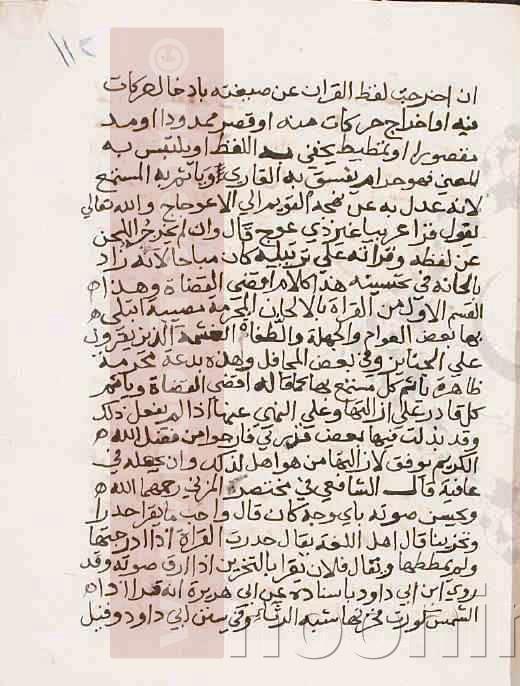 ١١٢
ان اخرجت لفظ القران عن صيغته بادخال حركات
فيه او اخراج حركات منه او قصر ممدود او مد
مقصور او تمطيط يخفي به اللفظ او يلتبس به
المعنى فهو حرام يفسق به القاري وياثم به المستمع
لانه عدل به عن نهجه القويم الى الاعوجاج والله تعالى
يقول قرانا عربيا غير ذي عوج قال وان لم يخرجه اللحن
عن لفظه وقراته على ترتيله كان مباحا لانه زاد
بالحانه في تحسينه هذا كلام اقضى القضاة وهذا
القسم الاول من القراة بالالحان المحرمة مصيبة ابتلي
بها بعض العوام والجهلة والطغاة الغشمة الذين يقرون
على الجنايز وفي بعض المحافل وهذه بدعة محرمة
ظاهرة ياثم كل مستمع بها كما قاله اقضى القضاة وياثم
كل قادر على ازالتها وعلى النهي عنها اذا لم يفعل ذلك
وقد بذلت فيها بعض قدرتي وارجوا من فضل الله
الكريم يوفق لازالتها من هو اهل لذلك وان يجعله في
عافية قال الشافعي في مختصر المزني رحمهما الله
ويحسن صوته باي وجه كان قال واحب ما يقرا حدرا
وتحزينا قال اهل اللغة يقال حدرت القراة اذا ادرجتها
ولم تمططها ويقال فلان يقرا بالتحزين اذا ارق صوته وقد
روي ابن ابي داود باسناده عن ابي هريرة انه قرا اذا
الشمس كورت فحزنها شبه الرثاء وفي سنن ابي داود وقيل
noormags